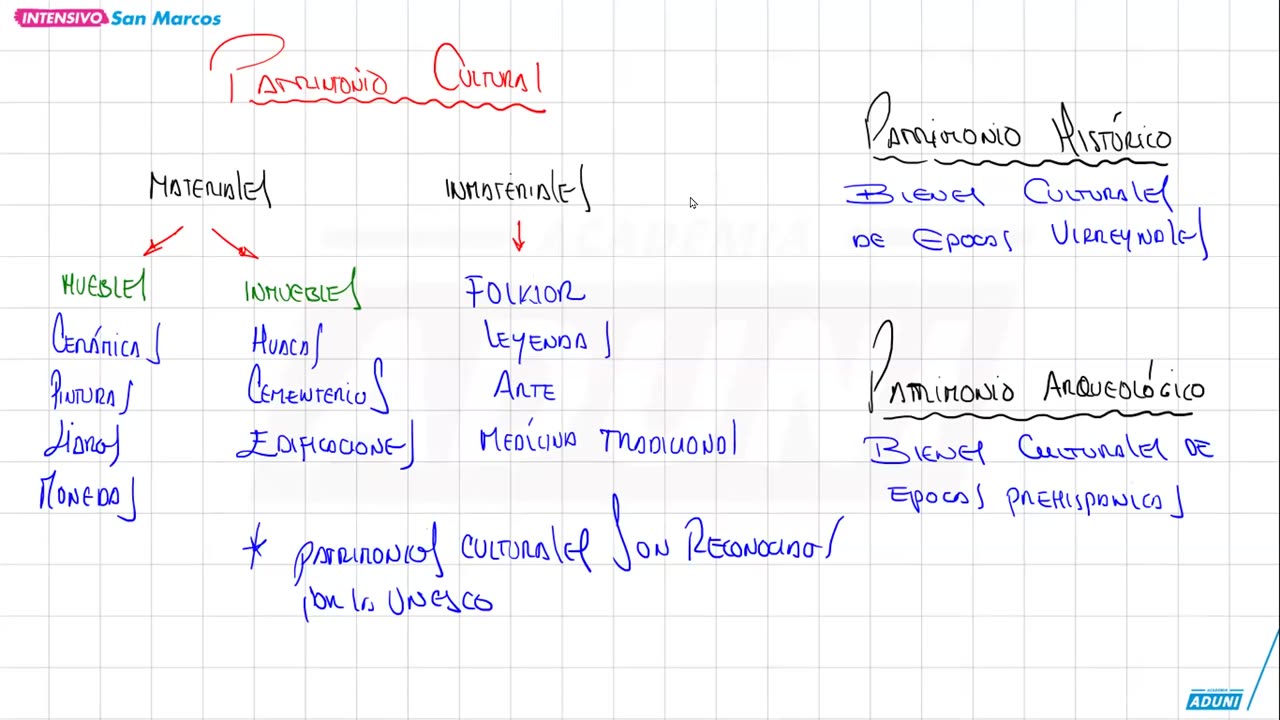 INTENSIVO San Marcos
PATRIMONIO CULTURAL
MATERIALES
INMATERIALES
MUEBLES
INMUEBLES
CERÁMICAS
PINTURAS
LIBROS
MONEDAS
HUACAS
CEMENTERIOS
EDIFICACIONES
FOLKLOR
LEYENDAS
ARTE
MEDICINA TRADICIONAL
* PATRIMONIOS CULTURALES SON RECONOCIDOS
POR LA UNESCO
PATRIMONIO HISTÓRICO
BIENES CULTURALES
DE EPOCAS VIRREYNALES
PATRIMONIO ARQUEOLÓGICO
BIENES CULTURALES DE
EPOCAS PREHISPANICAS
ACADEMIA
ADUNI